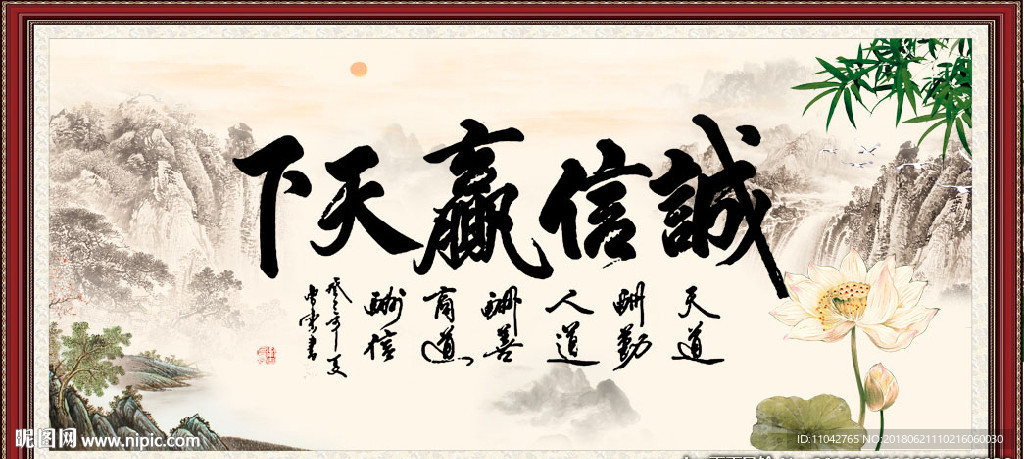 誠信贏天下
天道
酬勤
人道
酬善
商道
酬信
癸巳年夏
昵图网 www.nipic.com
ID:11042765 NO:20180621110216060030